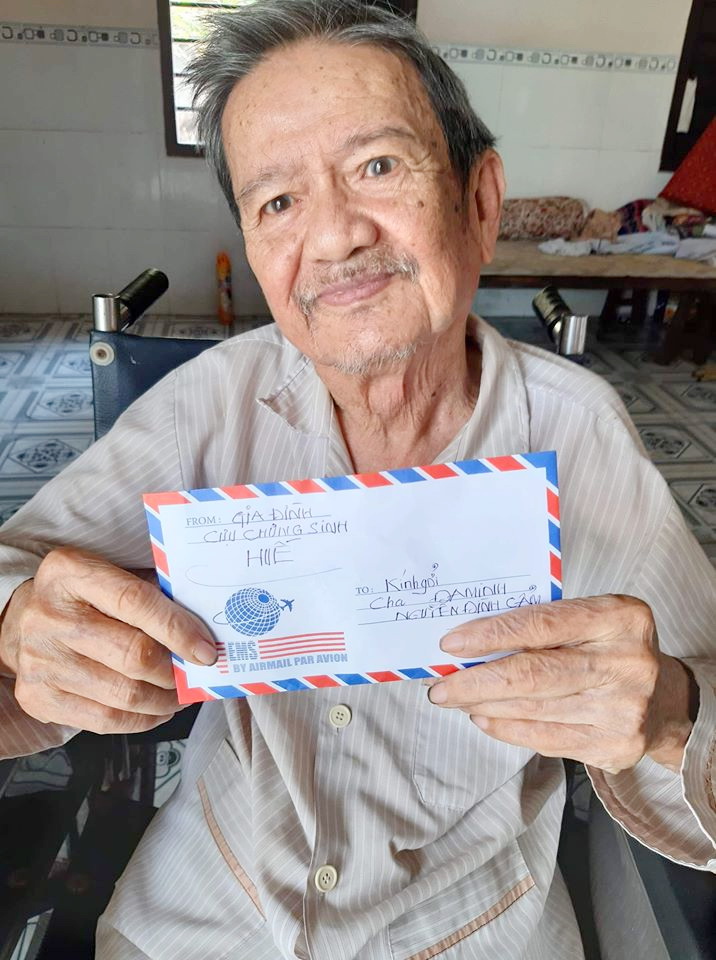 FROM: GIA ĐÌNH
CỰU CHỦNG SINH
HUẾ
TO: Kính gởi
Cha ĐAMINH
NGUYỄN ĐÌNH CẨM
EMS
BY AIRMAIL PAR AVION